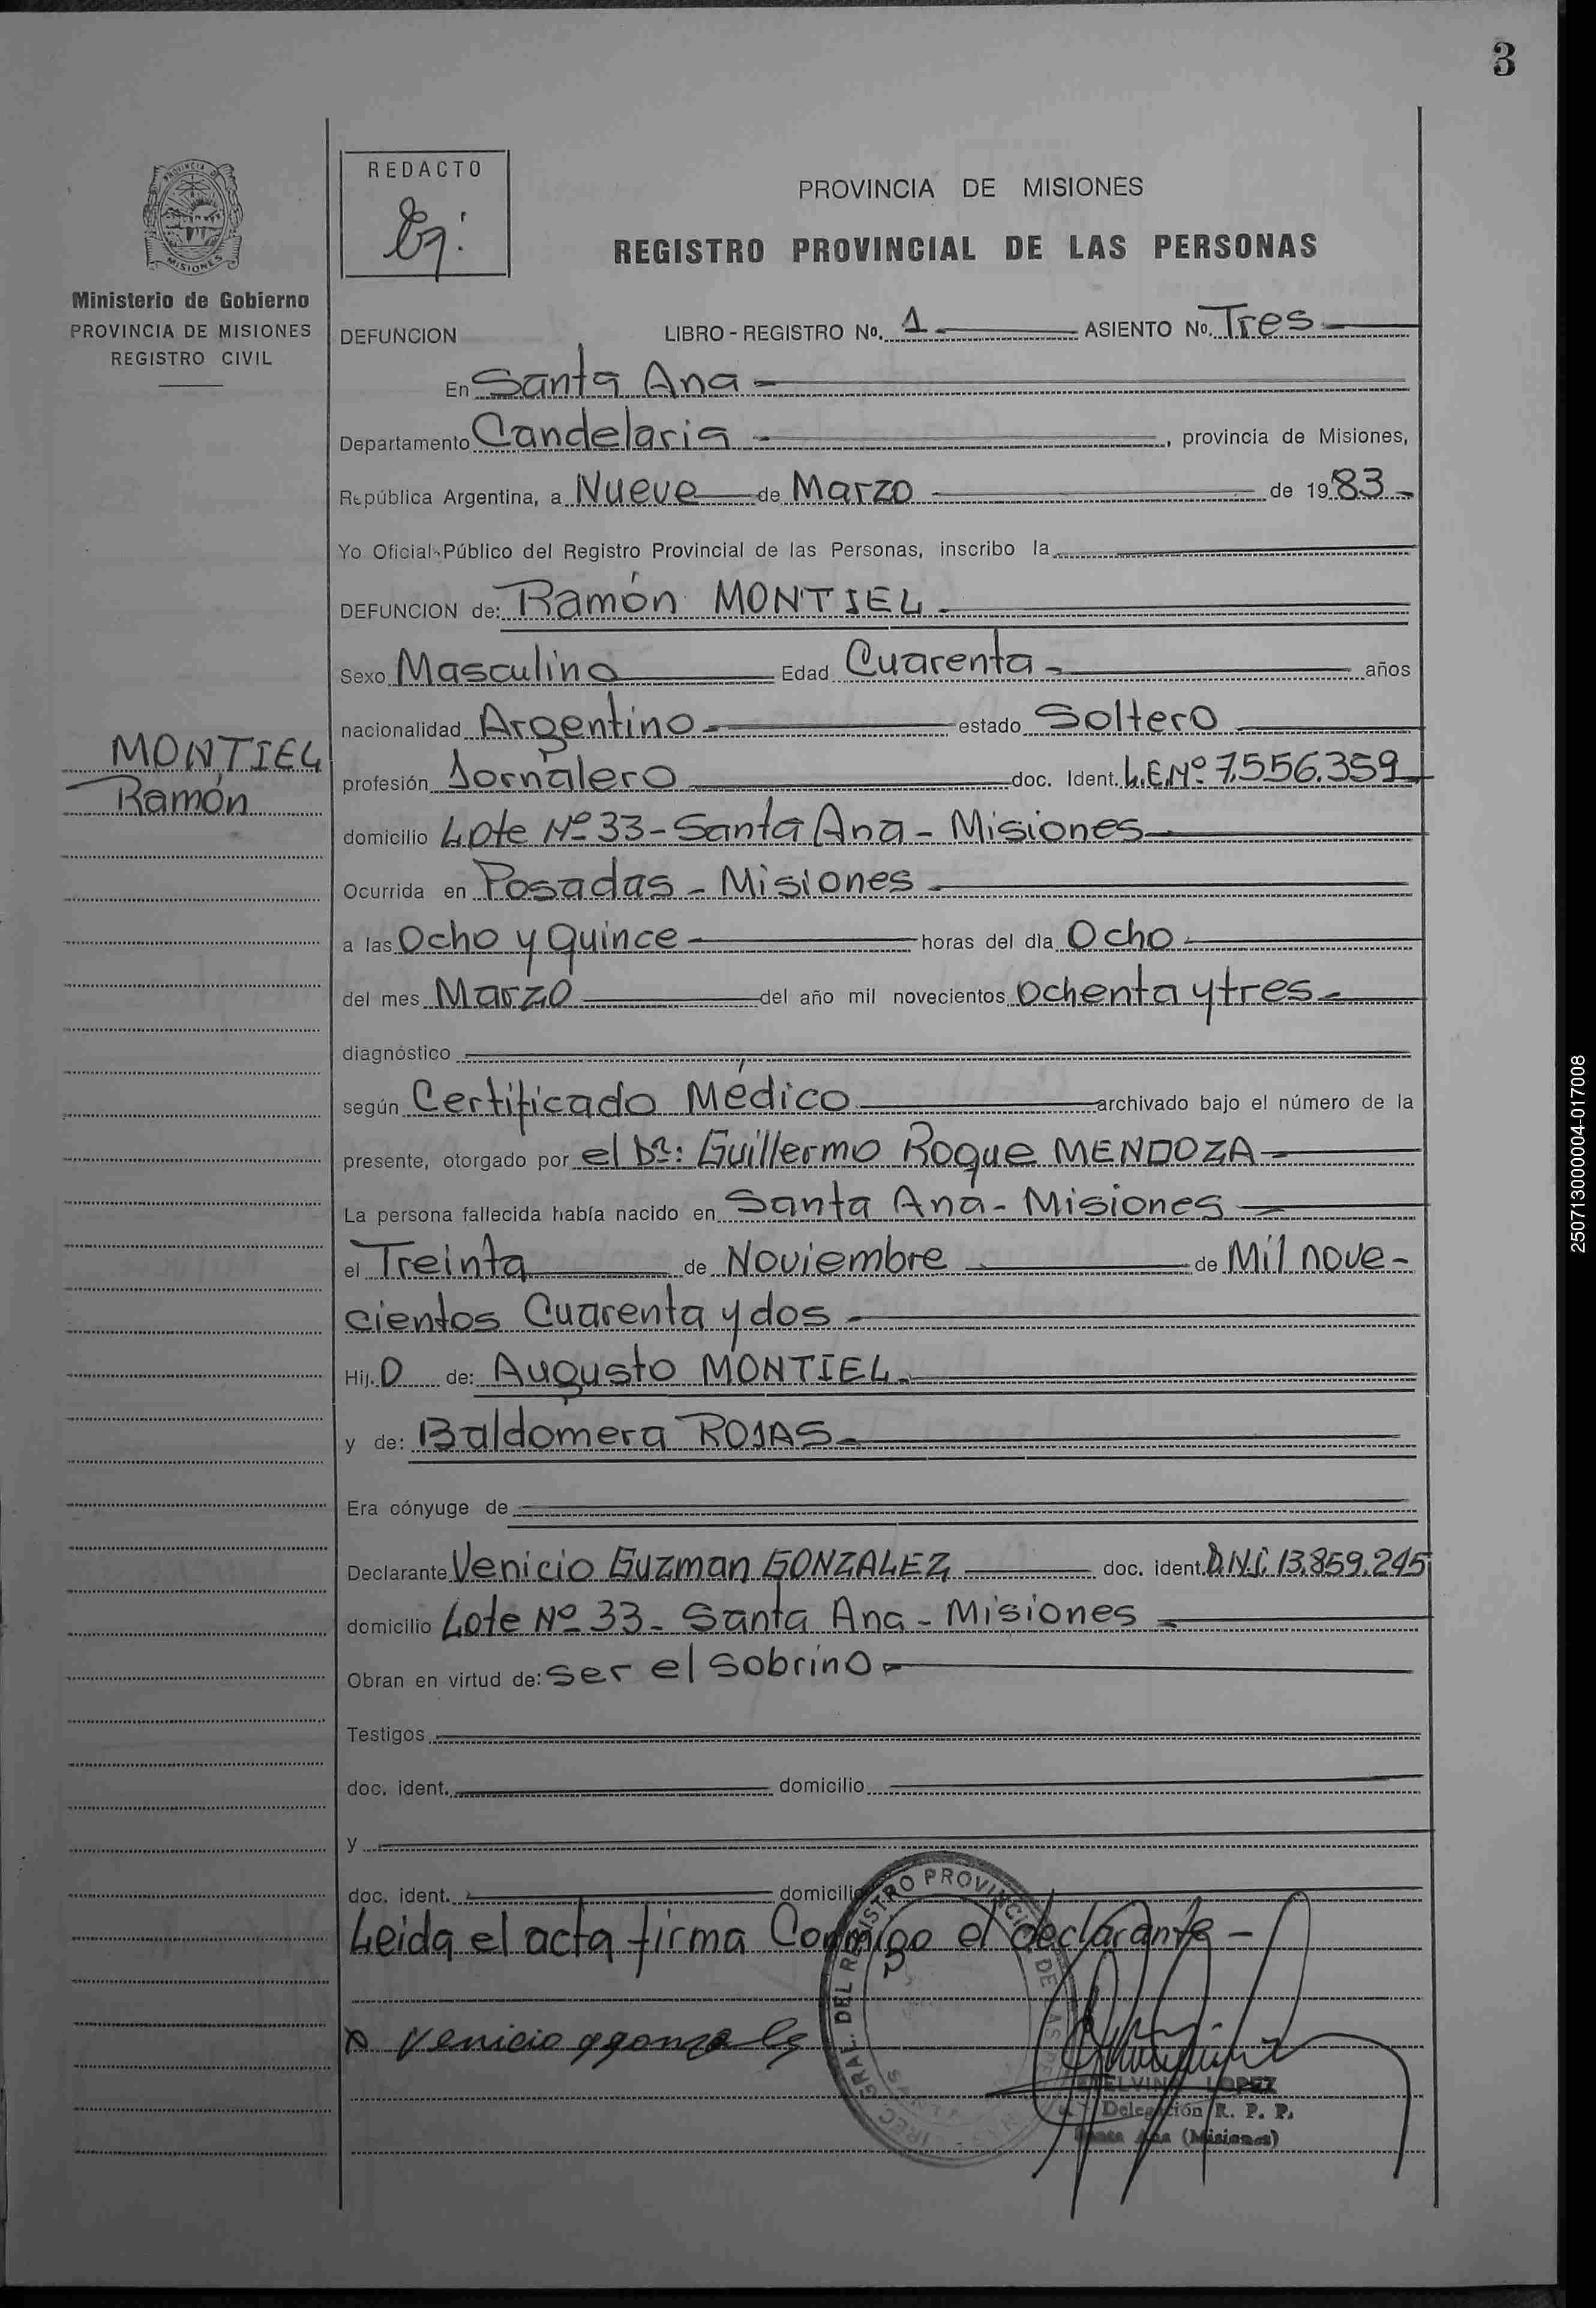 3
REDACTO
PROVINCIA DE MISIONES
REGISTRO PROVINCIAL DE LAS PERSONAS
PROVINCIA DE
MISIONES
Ministerio de Gobierno
PROVINCIA DE MISIONES
REGISTRO CIVIL
DEFUNCION LIBRO - REGISTRO No. 1 ASIENTO No. Tres
En Santa Ana
Departamento Candelaria, provincia de Misiones,
República Argentina, a Nueve de Marzo de 1983
Yo Oficial Público del Registro Provincial de las Personas, inscribo la
DEFUNCION de: Ramón MONTIEL
Sexo Masculino Edad Cuarenta años
nacionalidad Argentino estado Soltero
MONTIEL
Ramón
profesión Jornalero doc. Ident. L.E.Nº 7.556.359
domicilio Lote Nº 33 - Santa Ana - Misiones
Ocurrida en Posadas - Misiones
a las Ocho y Quince horas del día Ocho
del mes Marzo del año mil novecientos Ochenta y tres
diagnóstico
según Certificado Médico archivado bajo el número de la
presente, otorgado por el Dr: Guillermo Roque MENDOZA
La persona fallecida había nacido en Santa Ana - Misiones
el Treinta de Noviembre de Mil nove-
cientos Cuarenta y dos
Hij.o de: Augusto MONTIEL
y de: Baldomera ROJAS
Era cónyuge de
Declarante Venicio Guzman GONZALEZ doc. ident. D.N.I. 13.859.245
domicilio Lote Nº 33 - Santa Ana - Misiones
Obran en virtud de: ser el sobrino
Testigos
doc. ident. domicilio
y
doc. ident. domicilio
Leida el acta firma Conmigo el declarante -
DEL REGISTRO PROVINCIAL DE LAS
GRAL.
venicio g gonzales
LOPEZ
Delegación R. P. P.
Santa Ana (Misiones)
250713000004-017008